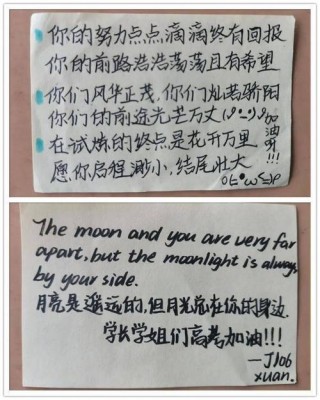 你的努力点点滴滴终有回报
你的前路浩浩荡荡且有希望
你们风华正茂,你们灿若骄阳
你们的前途光芒万丈
加油呀!!!
在试炼的终点是花开万里
愿你启程渺小,结尾壮大
The moon and you are very far
apart, but the moonlight is always
by your side.
月亮是遥远的,但月光就在你的身边.
学长学姐们高考加油!!!
—J106
xuan.